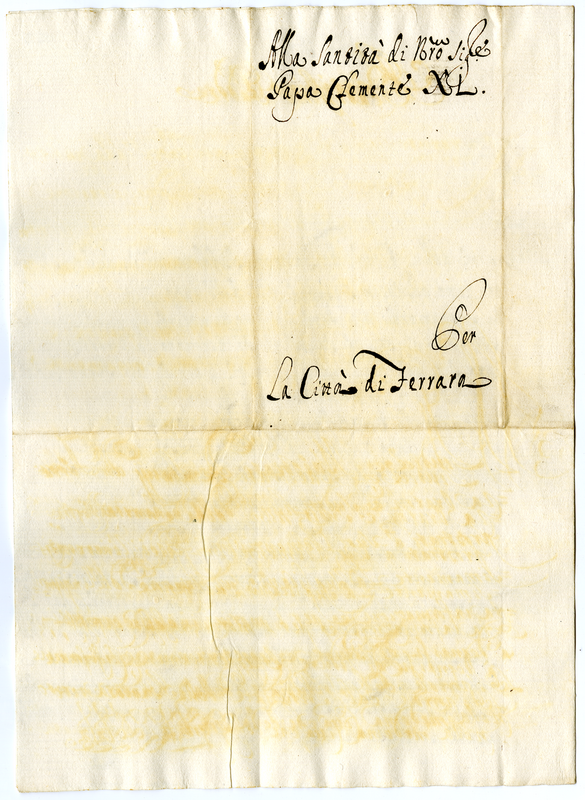 Alla Santità di Nrõ Sig.re
Papa Clemente XI.
Per
La Città di Ferrara